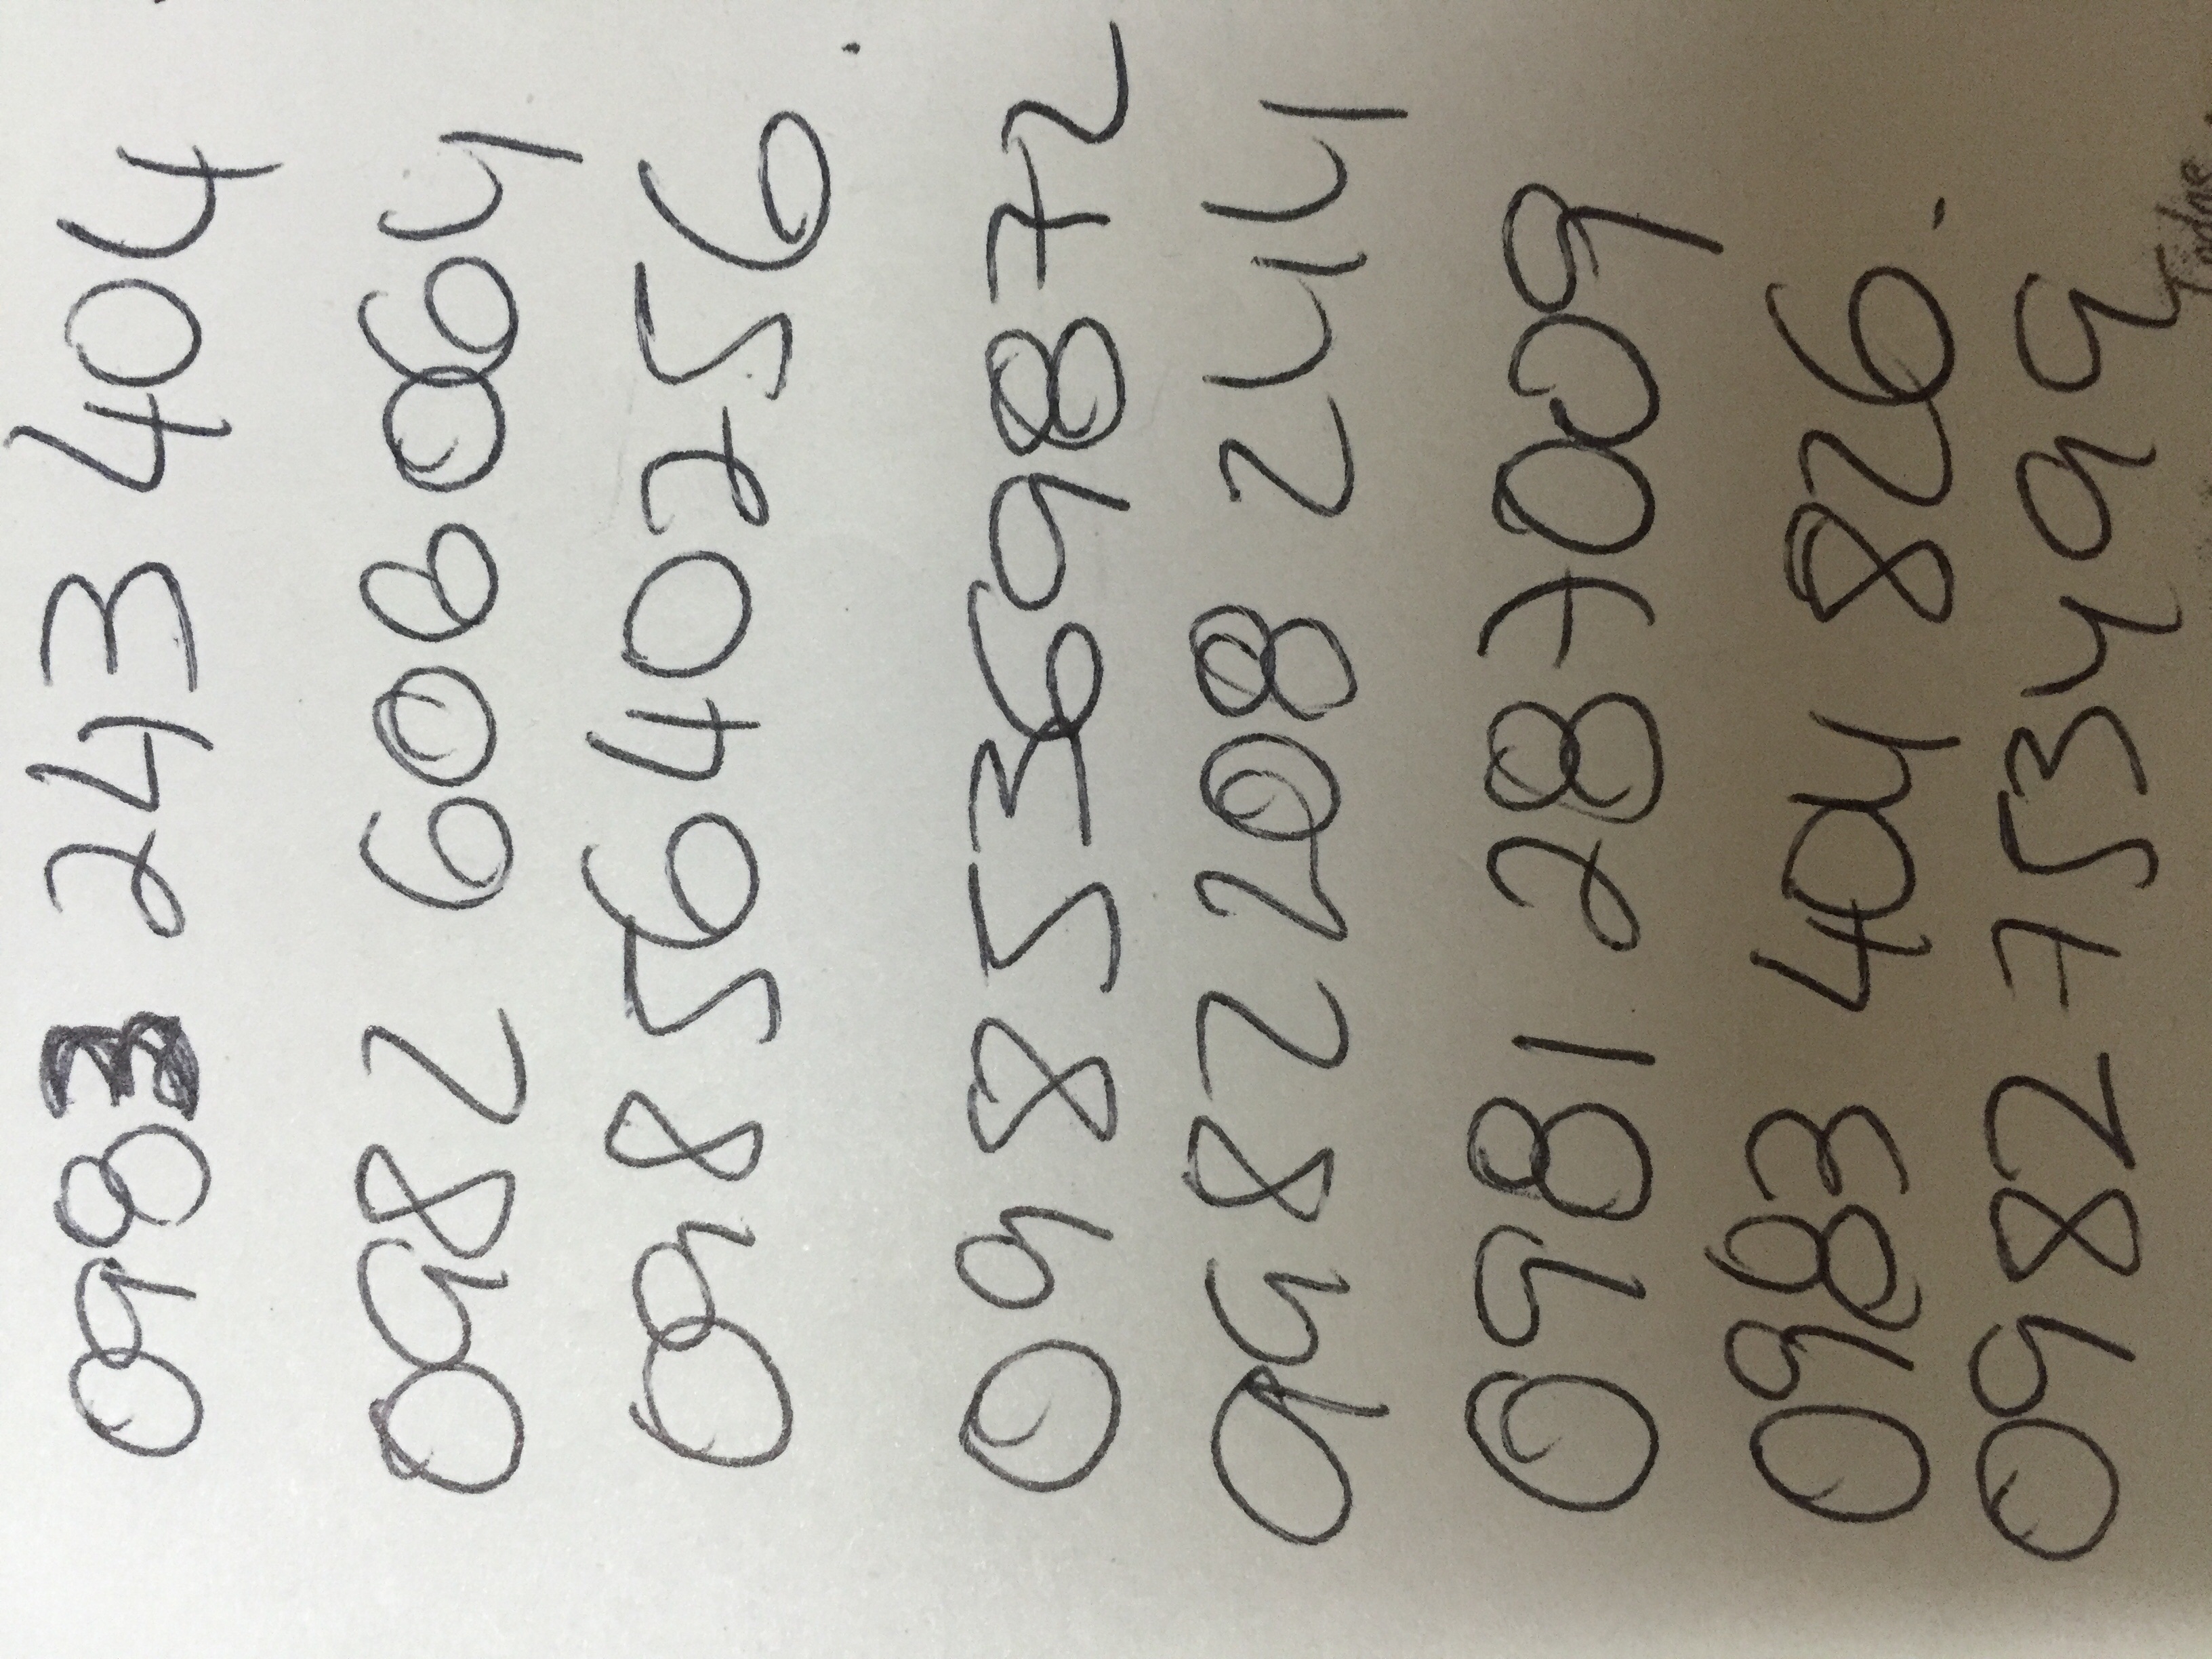 0983 243 404
0982 608064
0985640256
0985369872
0982208 244
0981 287009
0983 404 826.
0982753499